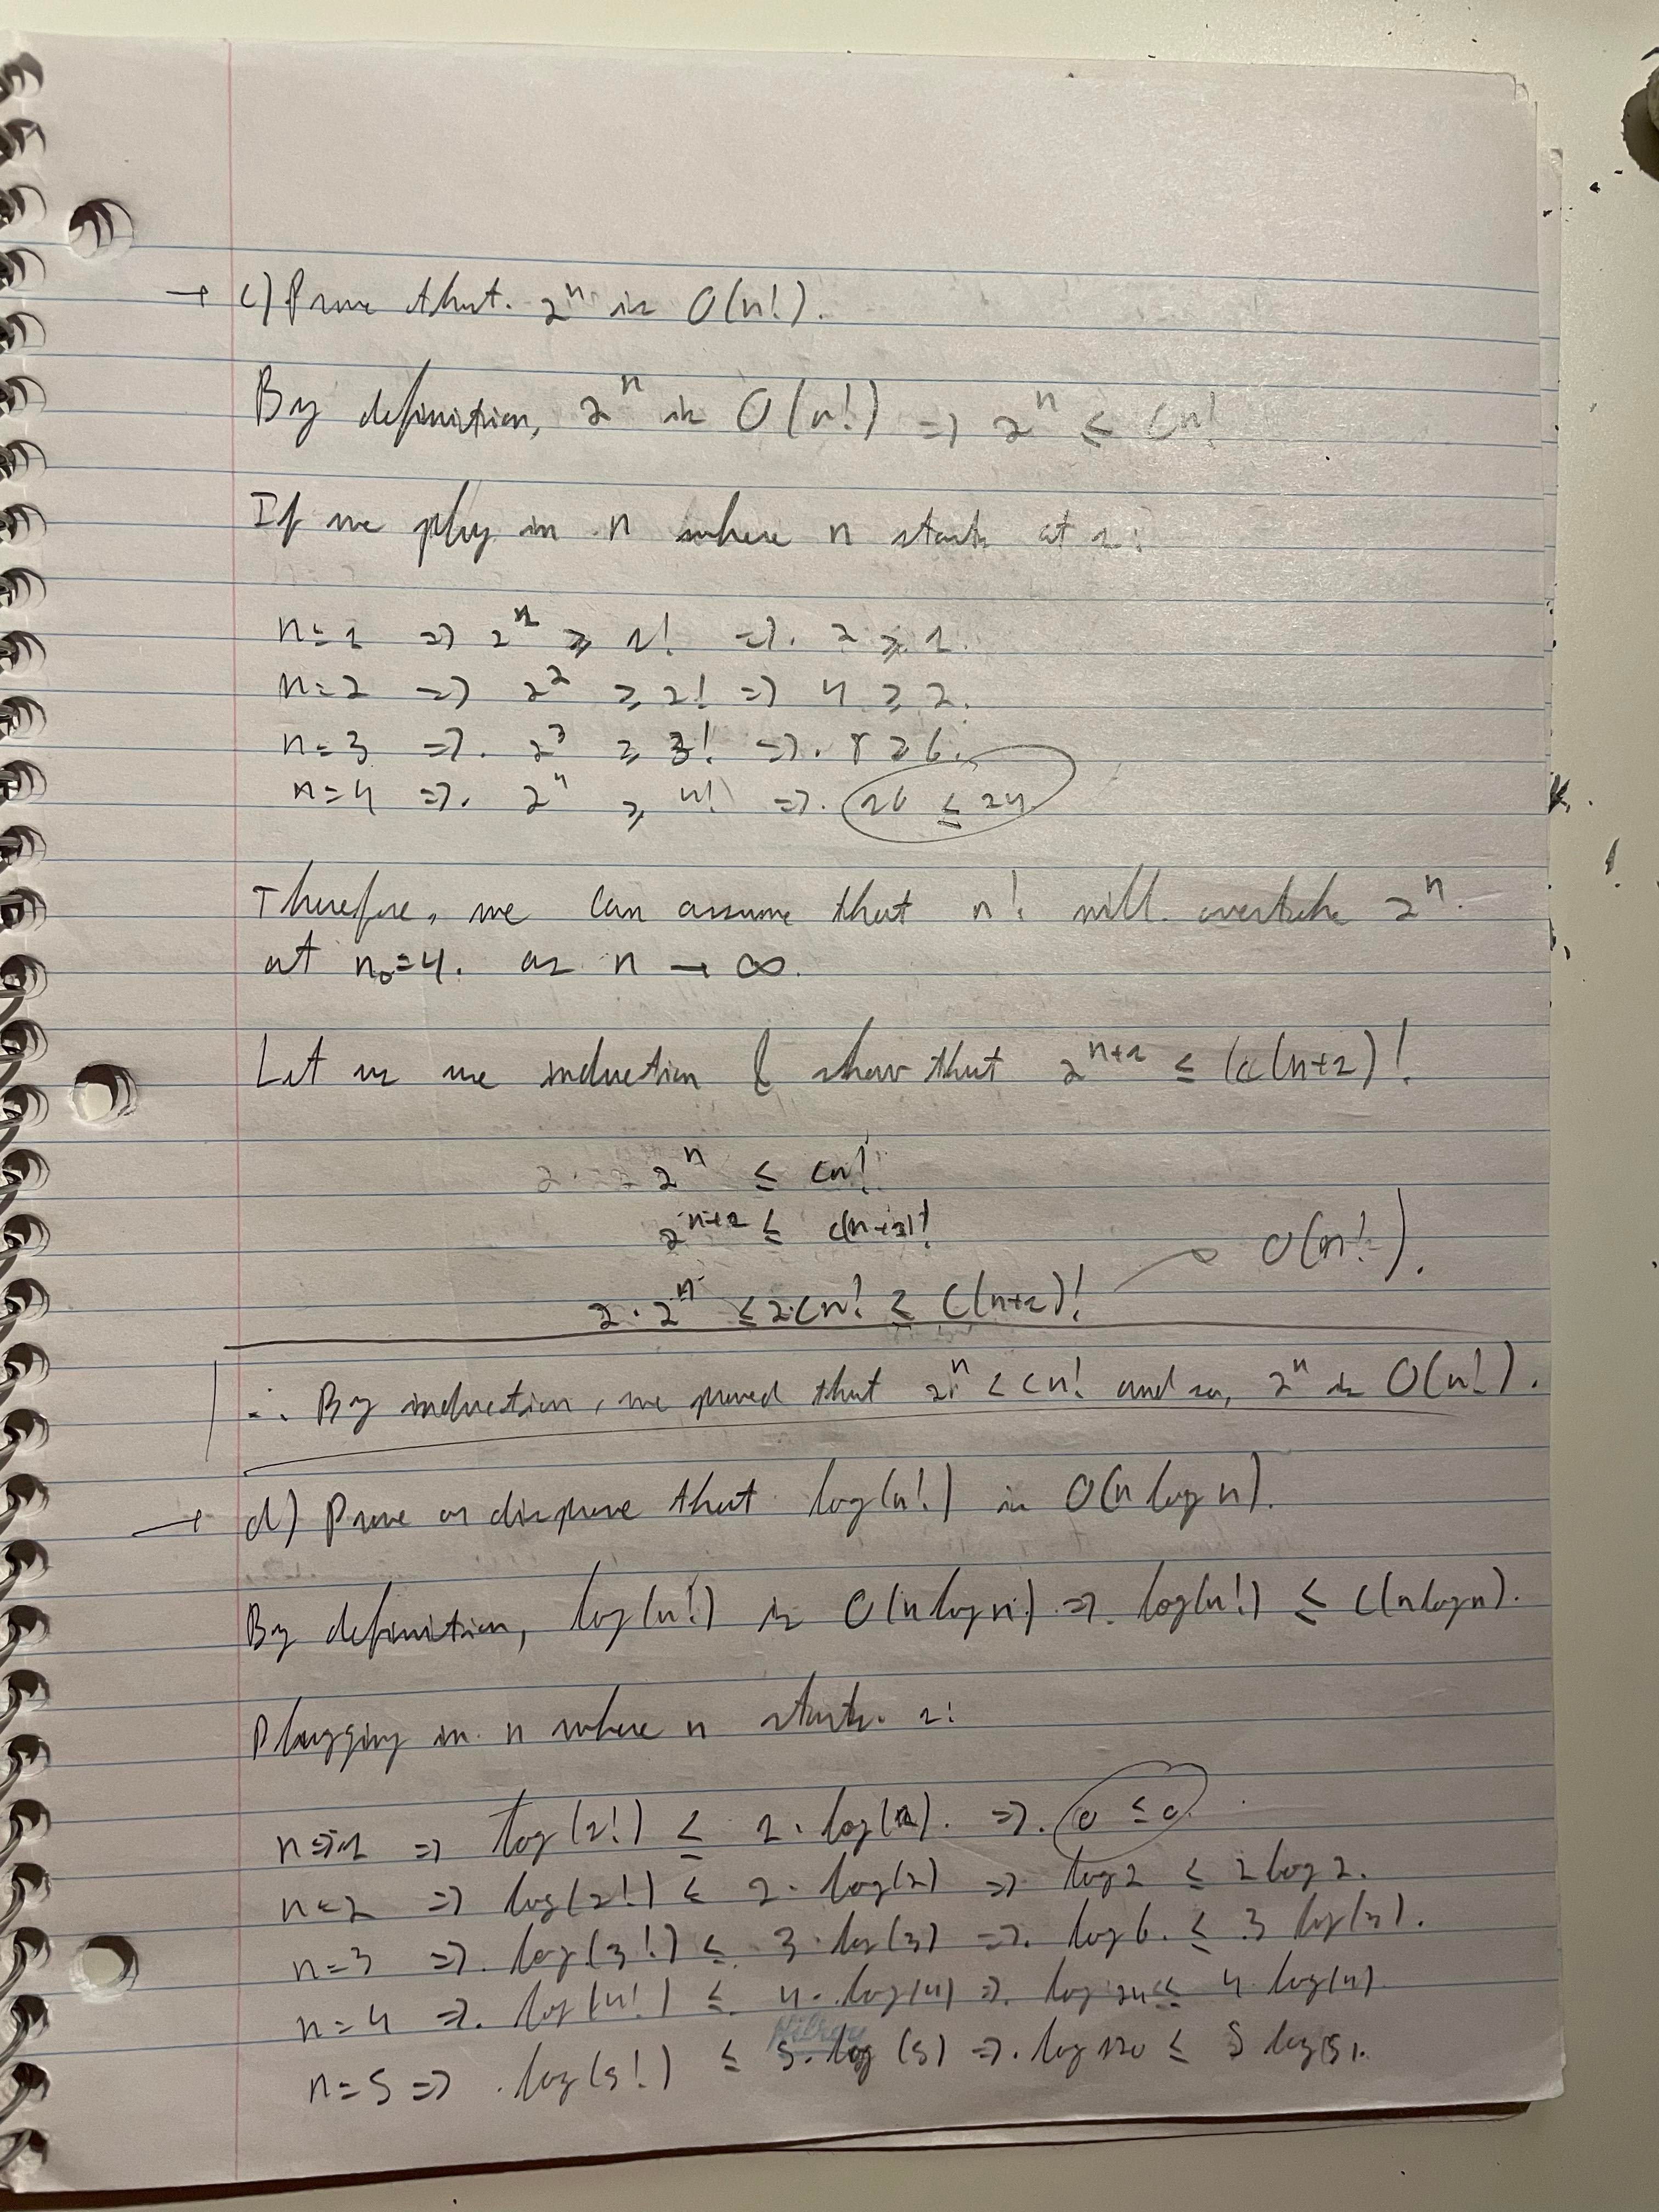 → c) Prove that. 2ⁿ is O(n!).
By definition, 2ⁿ is O(n!) => 2ⁿ ≤ Cn!
If we plug in n where n starts at 1:
n=1 => 2¹ ≥ 1! =>. 2 ≥ 1.
n=2 => 2² ≥ 2! => 4 ≥ 2.
n=3 =>. 2³ ≥ 3! =>. 8 ≥ 6.
n=4 =>. 2⁴ ≥ 4! =>. 16 ≤ 24
Therefore, we can assume that n! will overtake 2ⁿ.
at n₀=4. as n → ∞.
Let us use induction & show that 2ⁿ⁺¹ ≤ (c(n+1)!
2ⁿ ≤ cn!
2ⁿ⁺¹ ≤ c(n+1)!
2·2ⁿ ≤ 2·cn! ≤ C(n+1)! → O(n!).
∴ By induction, we proved that 2ⁿ ≤ cn! and so, 2ⁿ is O(n!).
→ d) Prove or disprove that log(n!) is O(n log n).
By definition, log(n!) is O(n log n) =>. log(n!) ≤ C(n log n).
Plugging in n where n starts. 1:
n=1 => log(1!) ≤ 1·log(1). =>. 0 ≤ 0.
n=2 => log(2!) ≤ 2·log(2) => log 2 ≤ 2 log 2.
n=3 =>. log(3!) ≤ 3·log(3) =>. log 6. ≤ 3 log(3).
n=4 =>. log(4!) ≤ 4·log(4) =>. log 24 ≤ 4 log(4).
n=5 => .log(5!) ≤ 5·log(5) =>. log 120 ≤ 5 log(5).
Hilroy